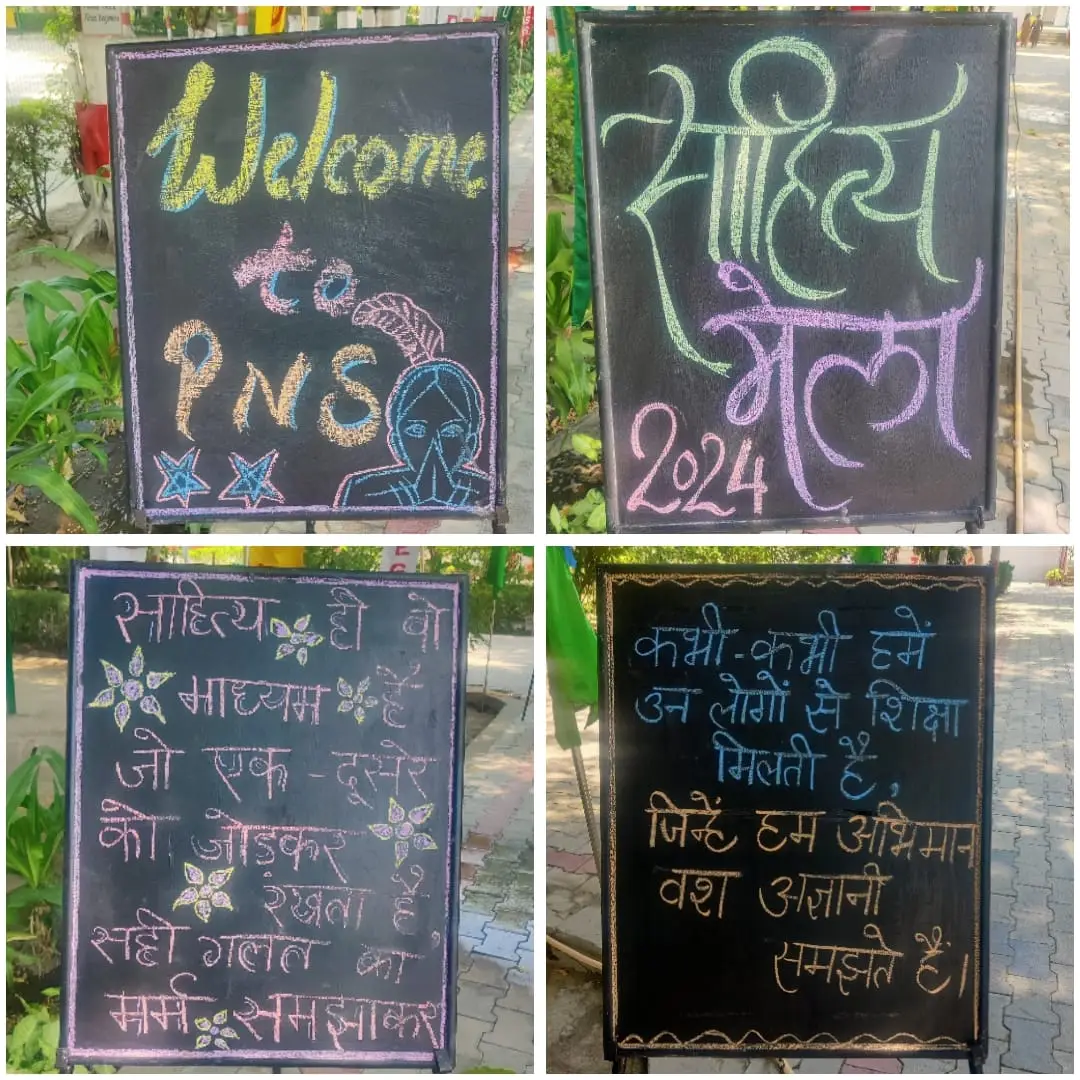 Welcome
to
PNS
साहित्य
मेला
2024
साहित्य ही वो
माध्यम है
जो एक-दूसरे
को जोड़कर
रखता है,
सही गलत का
मर्म समझाकर
कभी-कभी हमें
उन लोगों से शिक्षा
मिलती है,
जिन्हें हम अभिमान
वश अज्ञानी
समझते हैं।